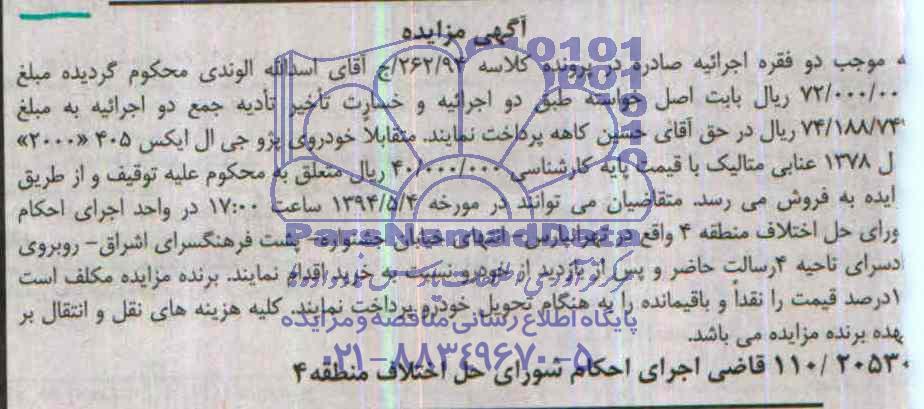 آگهی مزایده
ه موجب دو فقره اجرائیه صادره در پرونده کلاسه ۲۶۲/۹۳/ج آقای اسدالله الوندی محکوم گردیده مبلغ
۷۲/۰۰۰/۰۰ ریال بابت اصل خواسته طبق دو اجرائیه و خسارت تأخیر تأدیه جمع دو اجرائیه به مبلغ
۷۴/۱۸۸/۷۴ ریال در حق آقای حسین کاهه پرداخت نمایند. متقابلاً خودروی پژو جی ال ایکس ۴۰۵ «۲۰۰۰»
ل ۱۳۷۸ عنابی متالیک با قیمت پایه کارشناسی ۴۰/۰۰۰/۰۰۰ ریال متعلق به محکوم علیه توقیف و از طریق
زایده به فروش می رسد. متقاضیان می توانند در مورخه ۱۳۹۴/۵/۴ ساعت ۱۷:۰۰ در واحد اجرای احکام
ورای حل اختلاف منطقه ۴ واقع در تهرانپارس- انتهای خیابان جشنواره- پشت فرهنگسرای اشراق- روبروی
ادسرای ناحیه ۴رسالت حاضر و پس از بازدید از خودرو نسبت به خرید اقدام نمایند. برنده مزایده مکلف است
۱درصد قیمت را نقداً و باقیمانده را به هنگام تحویل خودرو پرداخت نمایند. کلیه هزینه های نقل و انتقال بر
هده برنده مزایده می باشد.
۱۱۰/۲۰۵۳۰ قاضی اجرای احکام شورای حل اختلاف منطقه۴
ParsNamadData
پایگاه اطلاع رسانی مناقصه و مزایده
۰۲۱-۸۸۳۴۹۶۷۰-۵